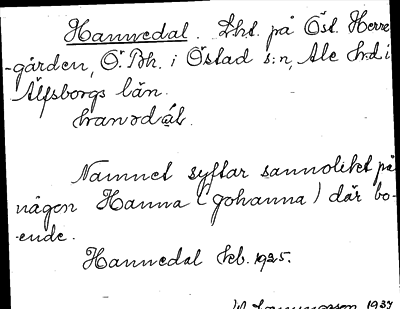 Hannedal. Lht. på Öst. Herre
-gården, Ö. Bh. i Östad s:n, Ale hd i
Älfsborgs län.
hanədɑ́l.
Namnet syftar sannolikt på
någon Hanna (Johanna) där bo-
-ende.
Hannedal Kb. 1925.
1937